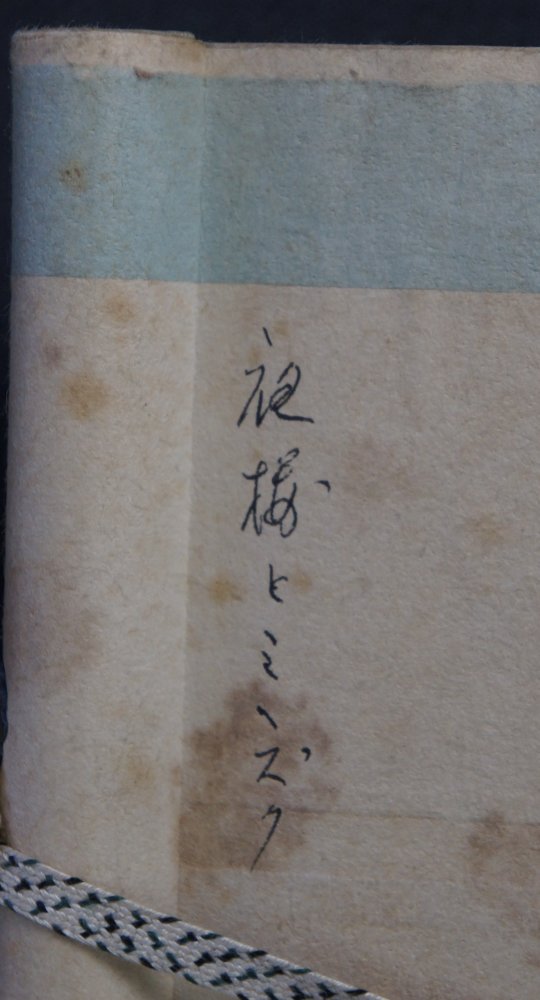 夜桜とミヽズク